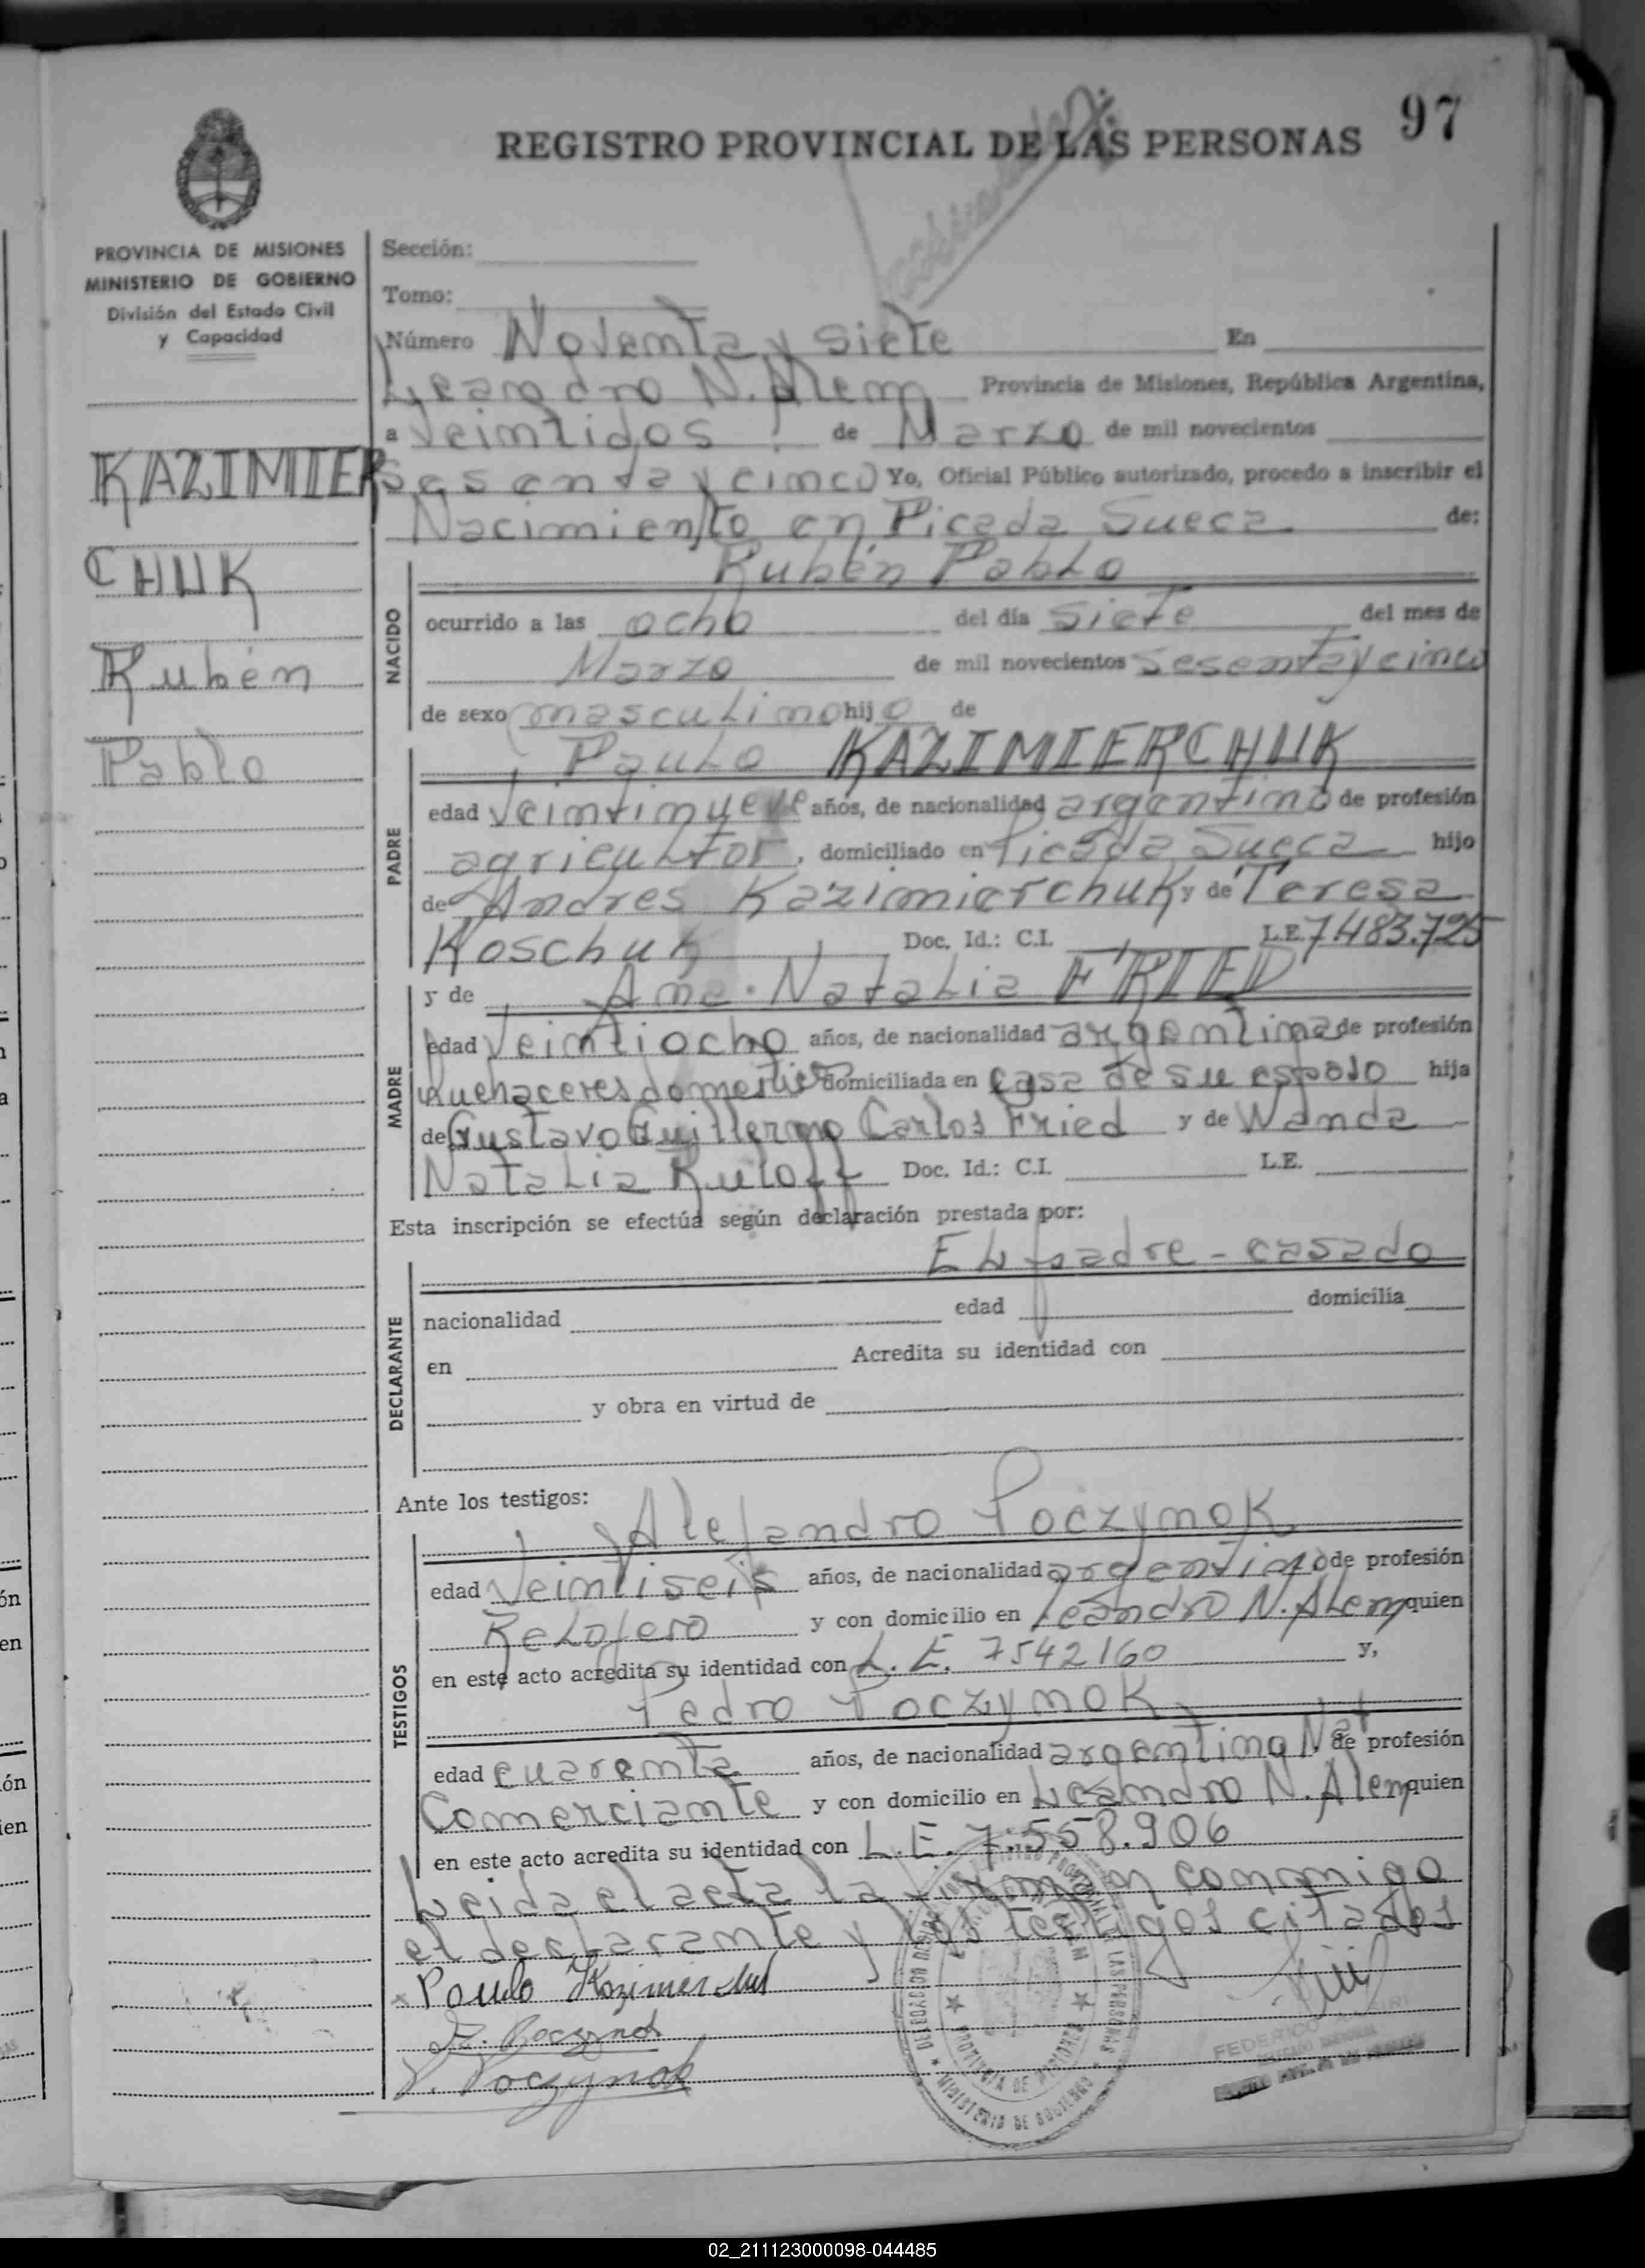 97
REGISTRO PROVINCIAL DE LAS PERSONAS
PROVINCIA DE MISIONES
MINISTERIO DE GOBIERNO
División del Estado Civil
y Capacidad
KAZIMIER
CHUK
Rubén
Pablo
Sección:
Tomo:
Número Noventa y siete En
Leandro N. Alem Provincia de Misiones, República Argentina,
a Veintidos de Marzo de mil novecientos
Sesenta y cinco Yo, Oficial Público autorizado, procedo a inscribir el
Nacimiento en Picada Sueca de:
NACIDO
Rubén Pablo
ocurrido a las ocho del día siete del mes de
Marzo de mil novecientos sesenta y cinco
de sexo masculino hijo de
PADRE
Paulo KAZIMIERCHUK
edad Veintinueve años, de nacionalidad argentino de profesión
agricultor, domiciliado en Picada Sueca hijo
de Andres Kazimierchuk y de Teresa
Koschuk Doc. Id.: C.I. L.E. 7.483.725
MADRE
y de Ana Natalia FRIED
edad Veintiocho años, de nacionalidad argentina de profesión
quehaceres domesticos domiciliada en casa de su esposo hija
de Gustavo Guillermo Carlos Fried y de Wanda
Natalia Ruloff Doc. Id.: C.I. L.E.
Esta inscripción se efectúa según declaración prestada por:
DECLARANTE
El padre - casado
nacionalidad edad domicilia
en Acredita su identidad con
y obra en virtud de
Ante los testigos:
TESTIGOS
Alejandro Poczynok
edad Veintiseis años, de nacionalidad argentino de profesión
Relojero y con domicilio en Leandro N. Alem quien
en este acto acredita su identidad con L. E. 7542160 y,
Pedro Poczynok
edad cuarenta años, de nacionalidad argentino Nat de profesión
Comerciante y con domicilio en Leandro N. Alem quien
en este acto acredita su identidad con L.E. 7.558.906
Leida el acta la firman conmigo
el declarante y los testigos citados
Paulo Kazimierchuk
P. Poczynok
PROVINCIA DE MISIONES
MINISTERIO DE GOBIERNO
FEDERICO
02_211123000098-044485